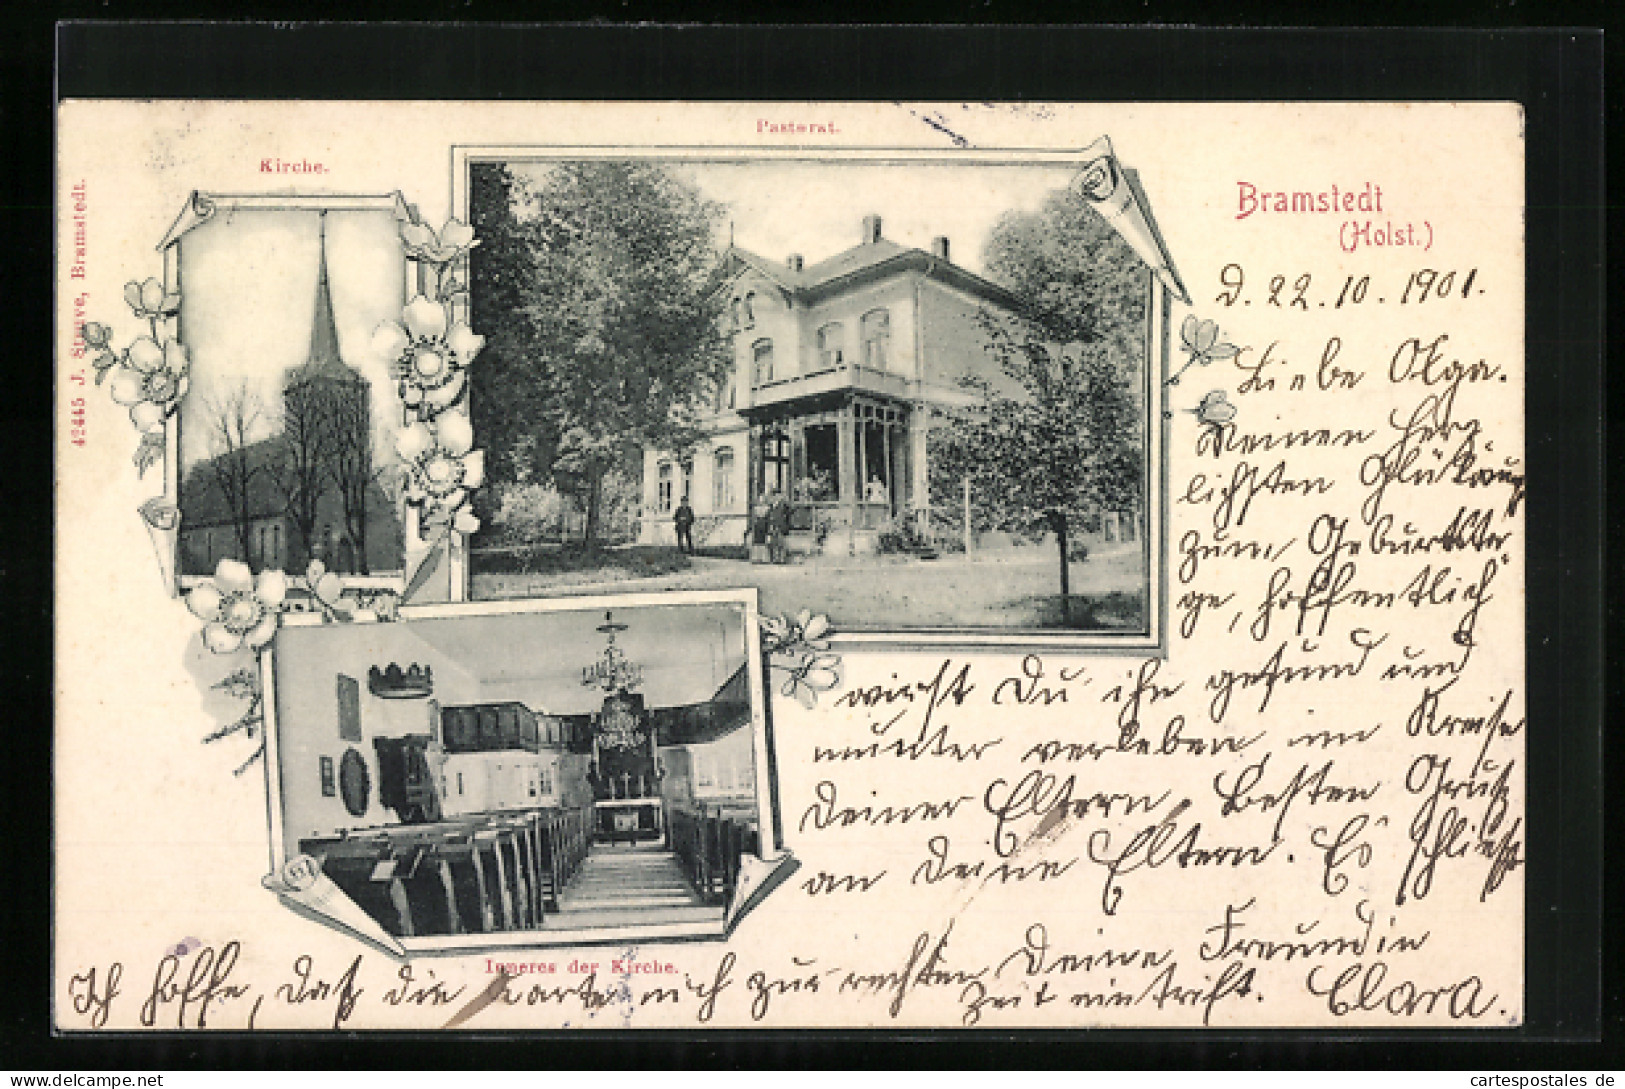 Kirche.
Pastorat.
42445 J. Struve, Bramstedt.
Bramstedt
(Holst.)
D. 22.10.1901.
Liebe Olga.
Meinen herz-
lichsten Glückwu
zum Geburtsta-
ge, hoffentlich
wirst Du ihn gesund und
munter verleben im Kreise
Deiner Eltern. Besten Gruß
an Deine Eltern. Es schließt
Deine Freundin
Clara.
Inneres der Kirche.
Ich hoffe, daß die Karte nich zur rechten
Zeit eintrift.
cartespostales de